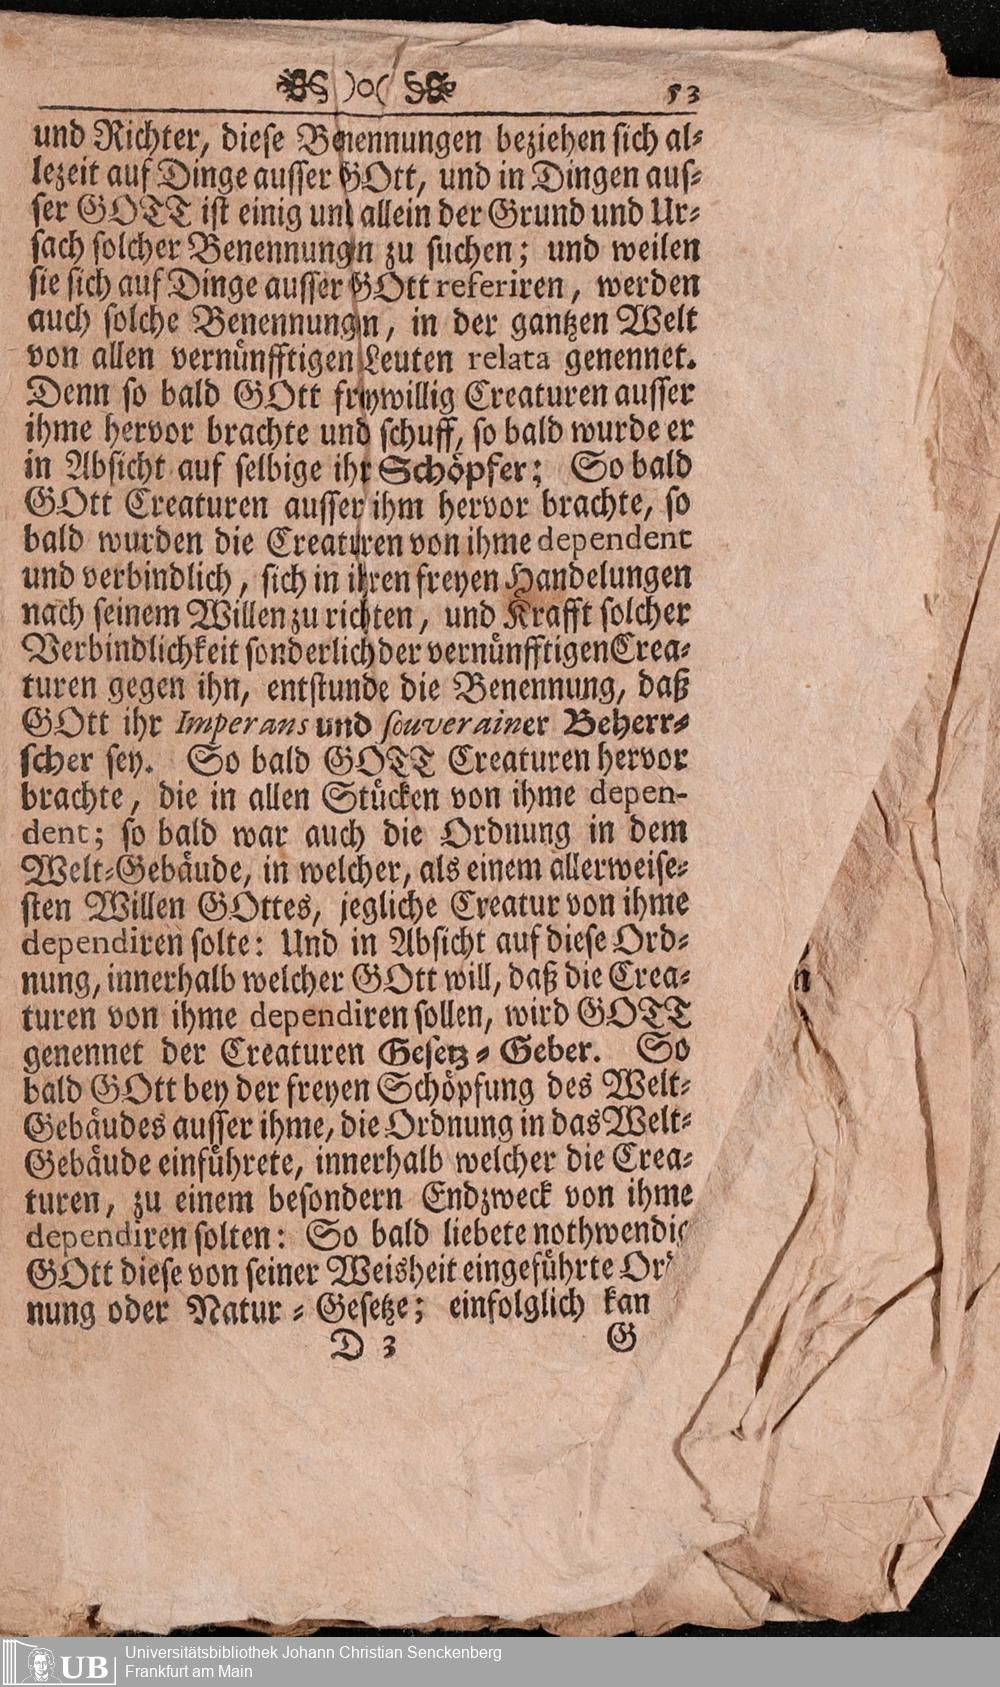 )o( 53
und Richter, diese Benennungen beziehen sich al-
lezeit auf Dinge ausser GOtt, und in Dingen aus-
ser GOTT ist einig und allein der Grund und Ur-
sach solcher Benennungen zu suchen; und weilen
sie sich auf Dinge ausser GOtt referiren, werden
auch solche Benennungen, in der gantzen Welt
von allen vernünfftigen Leuten relata genennet.
Denn so bald GOtt freywillig Creaturen ausser
ihme hervor brachte und schuff, so bald wurde er
in Absicht auf selbige ihr Schöpfer; So bald
GOtt Creaturen ausser ihm hervor brachte, so
bald wurden die Creaturen von ihme dependent
und verbindlich, sich in ihren freyen Handelungen
nach seinem Willen zu richten, und Krafft solcher
Verbindlichkeit sonderlich der vernünfftigen Crea-
turen gegen ihn, entstunde die Benennung, daß
GOtt ihr Imperans und souverainer Beherr-
scher sey. So bald GOTT Creaturen hervor
brachte, die in allen Stücken von ihme depen-
dent; so bald war auch die Ordnung in dem
Welt-Gebäude, in welcher, als einem allerweise-
sten Willen GOttes, jegliche Creatur von ihme
dependiren solte: Und in Absicht auf diese Ord-
nung, innerhalb welcher GOtt will, daß die Crea-
turen von ihme dependiren sollen, wird GOTT
genennet der Creaturen Gesetz-Geber. So
bald GOtt bey der freyen Schöpfung des Welt-
Gebäudes ausser ihme, die Ordnung in das Welt-
Gebäude einführete, innerhalb welcher die Crea-
turen, zu einem besondern Endzweck von ihme
dependiren solten: So bald liebete nothwendig
GOtt diese von seiner Weisheit eingeführte Ord-
nung oder Natur-Gesetze; einfolglich kan
D 3 G
UB Universitätsbibliothek Johann Christian Senckenberg
Frankfurt am Main